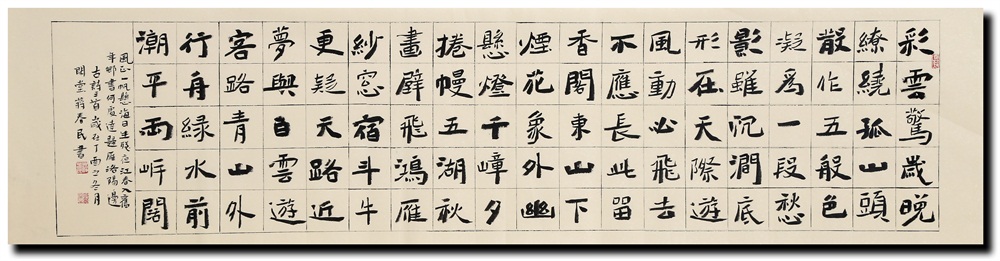 彩雲驚歲晚
繚繞孤山頭
散作五般色
凝爲一段愁
影雖沉澗底
形在天際遊
風動必飛去
不應長此畱
香閣東山下
煙花象外幽
懸燈千嶂夕
捲幔五湖秋
畫壁飛鴻雁
紗窓宿斗牛
更疑天路近
夢與白雲遊
客路青山外
行舟綠水前
潮平兩岸闊
風正一帆懸海日生殘夜江春入舊
年鄉書何處達歸雁洛陽邊
古詩三首歲在丁酉之冬月
堂翁春民書